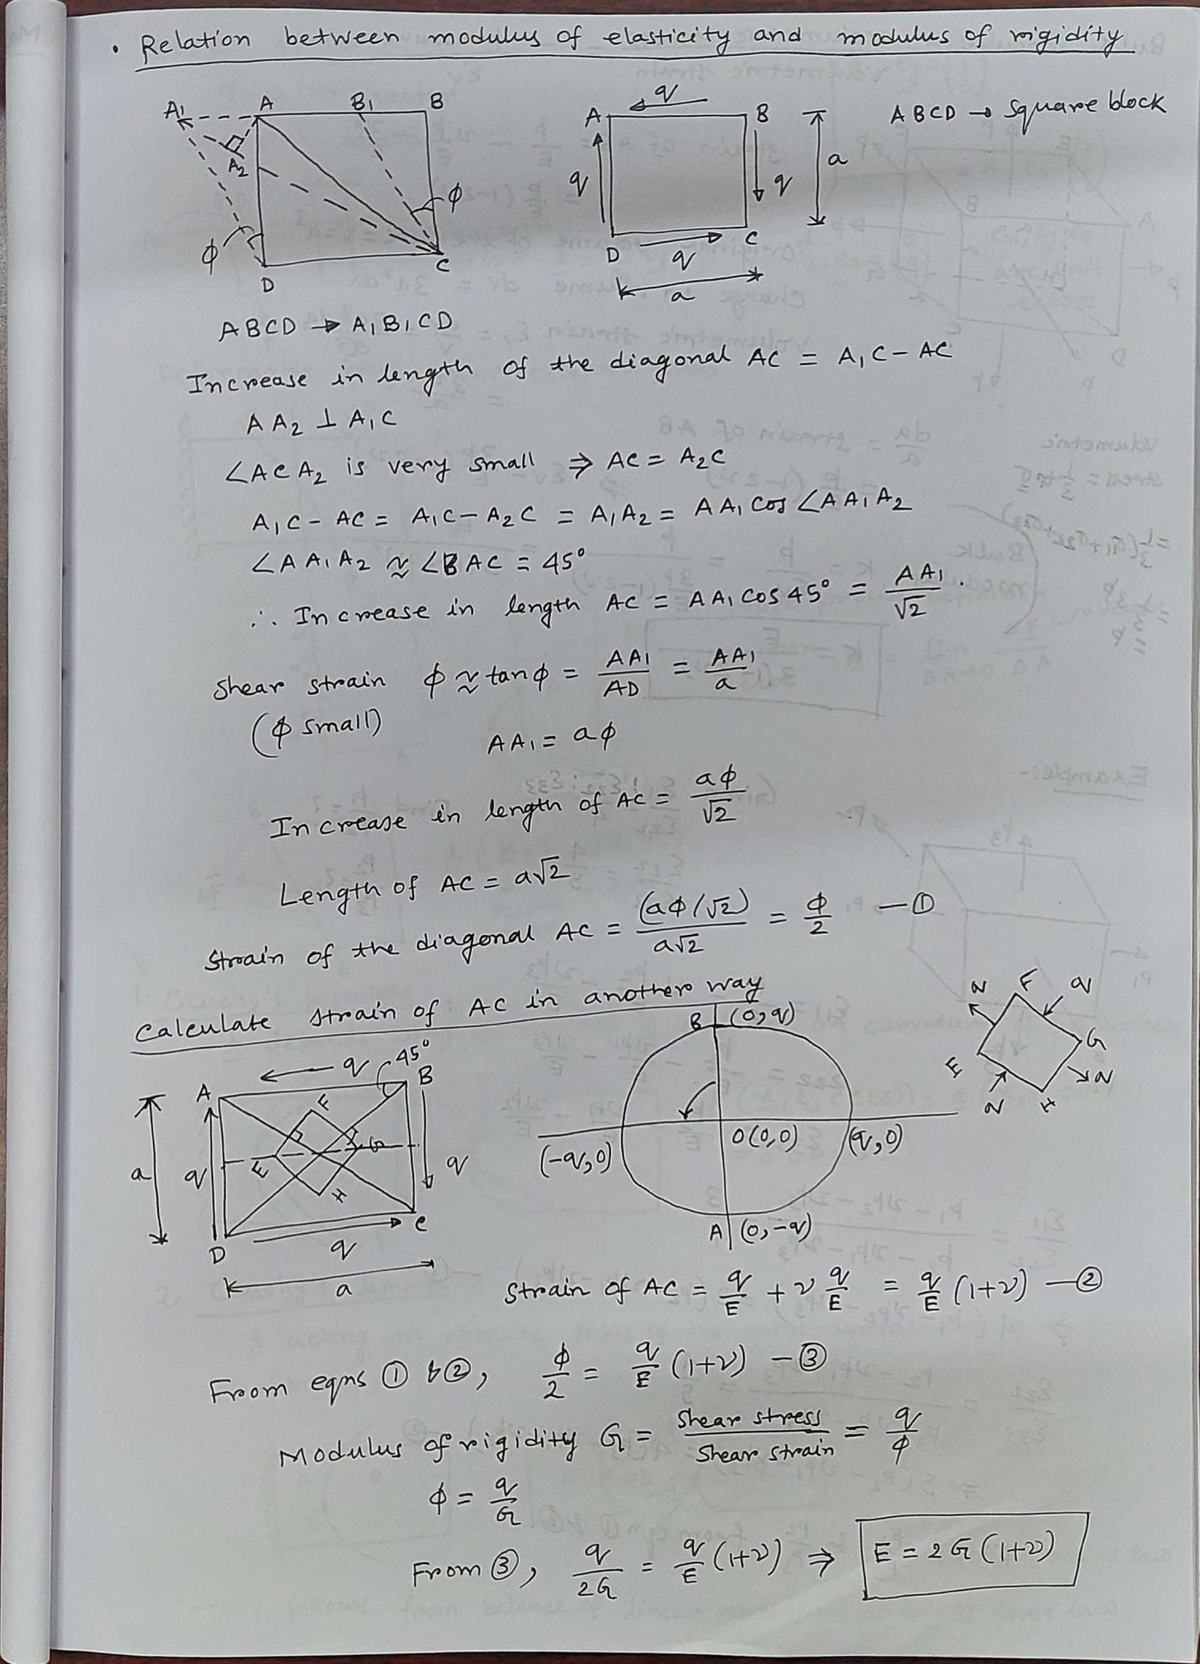 • Relation between modulus of elasticity and modulus of rigidity
A1 A B1 B
A2
φ
φ
D C
q
A B
q q a
D C
q
a
ABCD → Square block
ABCD → A1B1CD
Increase in length of the diagonal AC = A1C - AC
AA2 ⊥ A1C
∠ACA2 is very small ⇒ AC = A2C
A1C - AC = A1C - A2C = A1A2 = AA1 cos ∠AA1A2
∠AA1A2 ≈ ∠BAC = 45°
∴ Increase in length AC = AA1 cos 45° = AA1/√2.
Shear strain φ ≈ tan φ = AA1/AD = AA1/a
(φ small)
AA1 = aφ
Increase in length of AC = aφ/√2
Length of AC = a√2
Strain of the diagonal AC = (aφ/√2)/a√2 = φ/2 — ①
Calculate strain of AC in another way
q 45°
A B
F
a q E G q
H
D C
q
a
B (0, q)
(-q, 0) O(0,0) (q, 0)
A (0, -q)
q F q
E G
q H q
Strain of AC = q/E + ν q/E = q/E (1+ν) — ②
From eqns ① & ②, φ/2 = q/E (1+ν) — ③
Modulus of rigidity G = Shear stress/Shear strain = q/φ
φ = q/G
From ③, q/2G = q/E (1+ν) ⇒ E = 2G(1+ν)